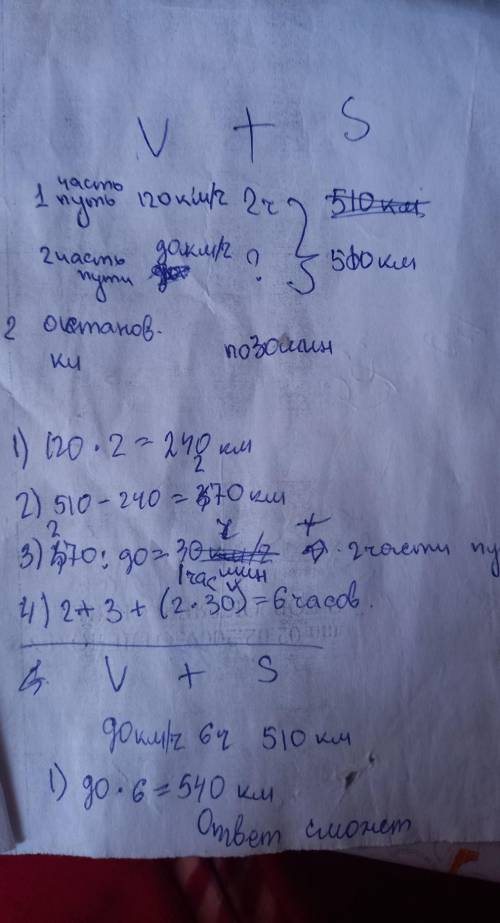 V t S
1 часть путь 120 км/ч 2ч 510 км
2 часть пути 90км/ч ? 510 км
2 остановки по 30 мин
1) 120 · 2 = 240 км
2) 510 - 240 = 270 км
3) 270 : 90 = 3 ч t 2 части пу
4) 2 + 3 + (2 · 30) = 6 часов.
1 час
V t S
90км/ч 6ч 510 км
1) 90 · 6 = 540 км
Ответ сможет